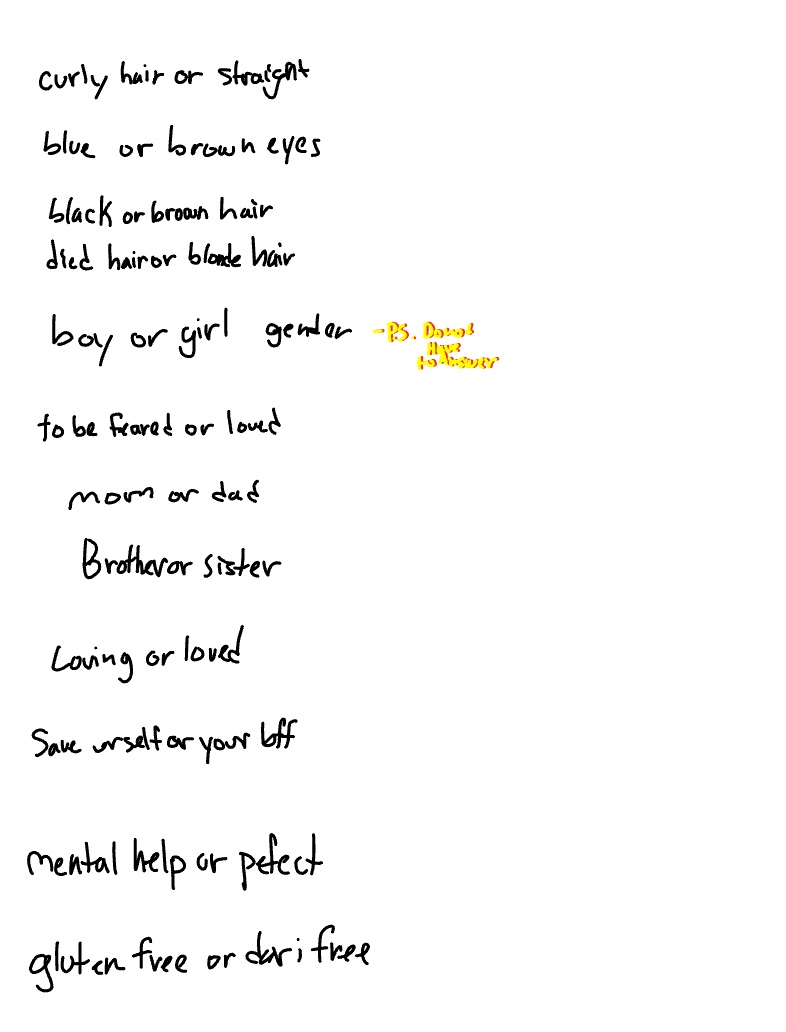 curly hair or straight
blue or brown eyes
black or brown hair
died hair or blonde hair
boy or girl gender - P.S. Do not
Have
to Answer
to be feared or loved
mom or dad
Brother or sister
Loving or loved
Save urself or your bff
mental help or pefect
gluten free or dari free